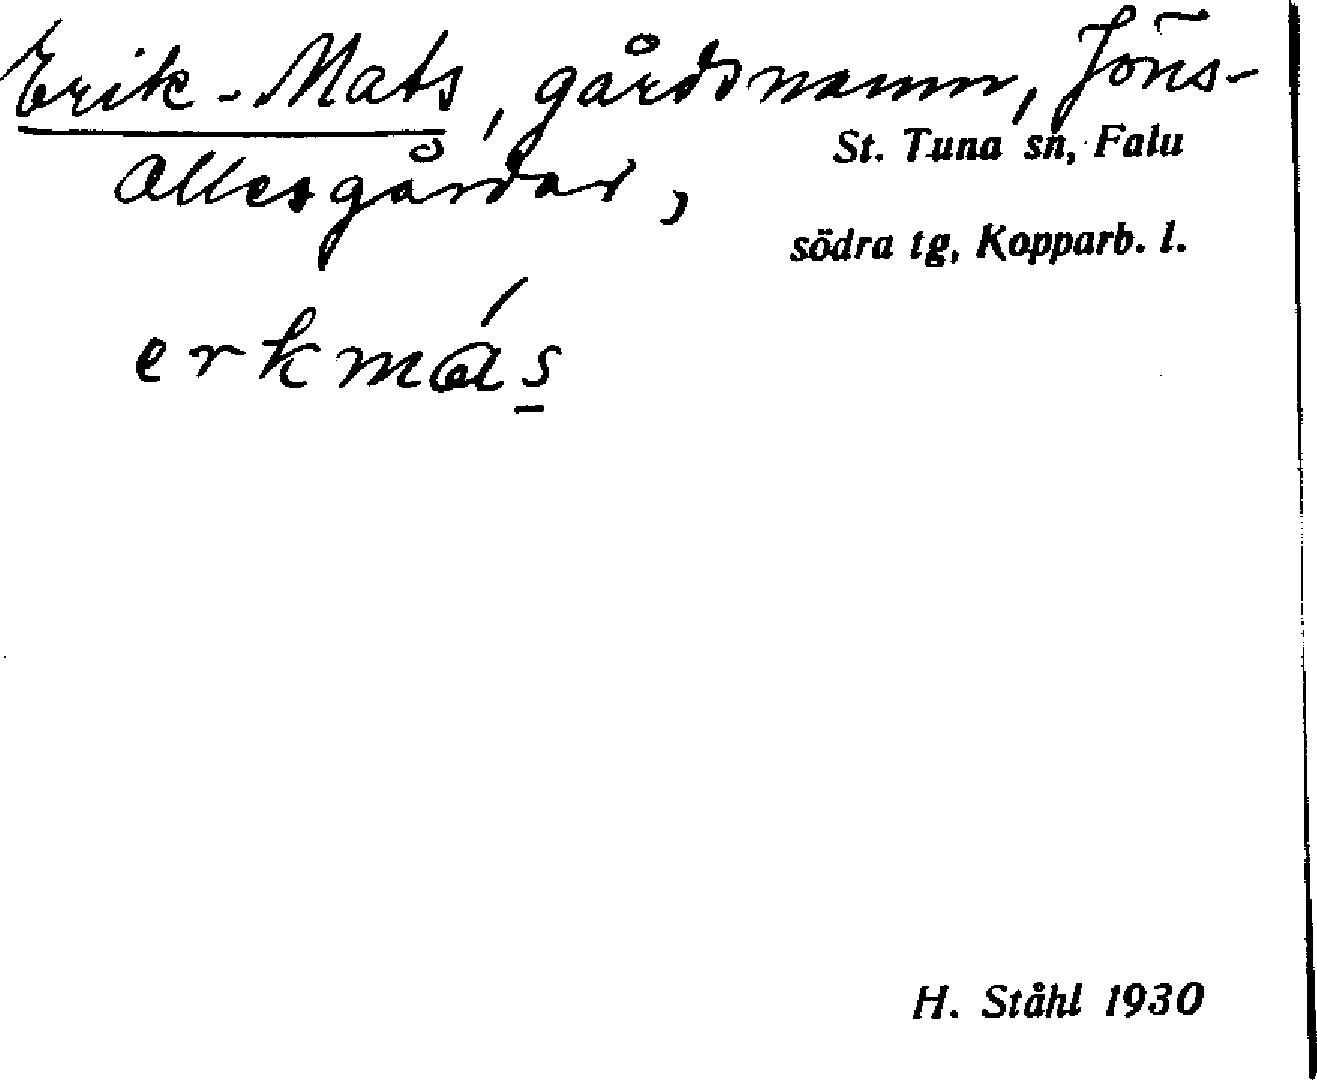 Erik-Mats, gårdsnamn, Jöns-
Allersgårdar,
St. Tuna sn, Falu
södra tg, Kopparb. l.
erkmás
H. Ståhl 1930